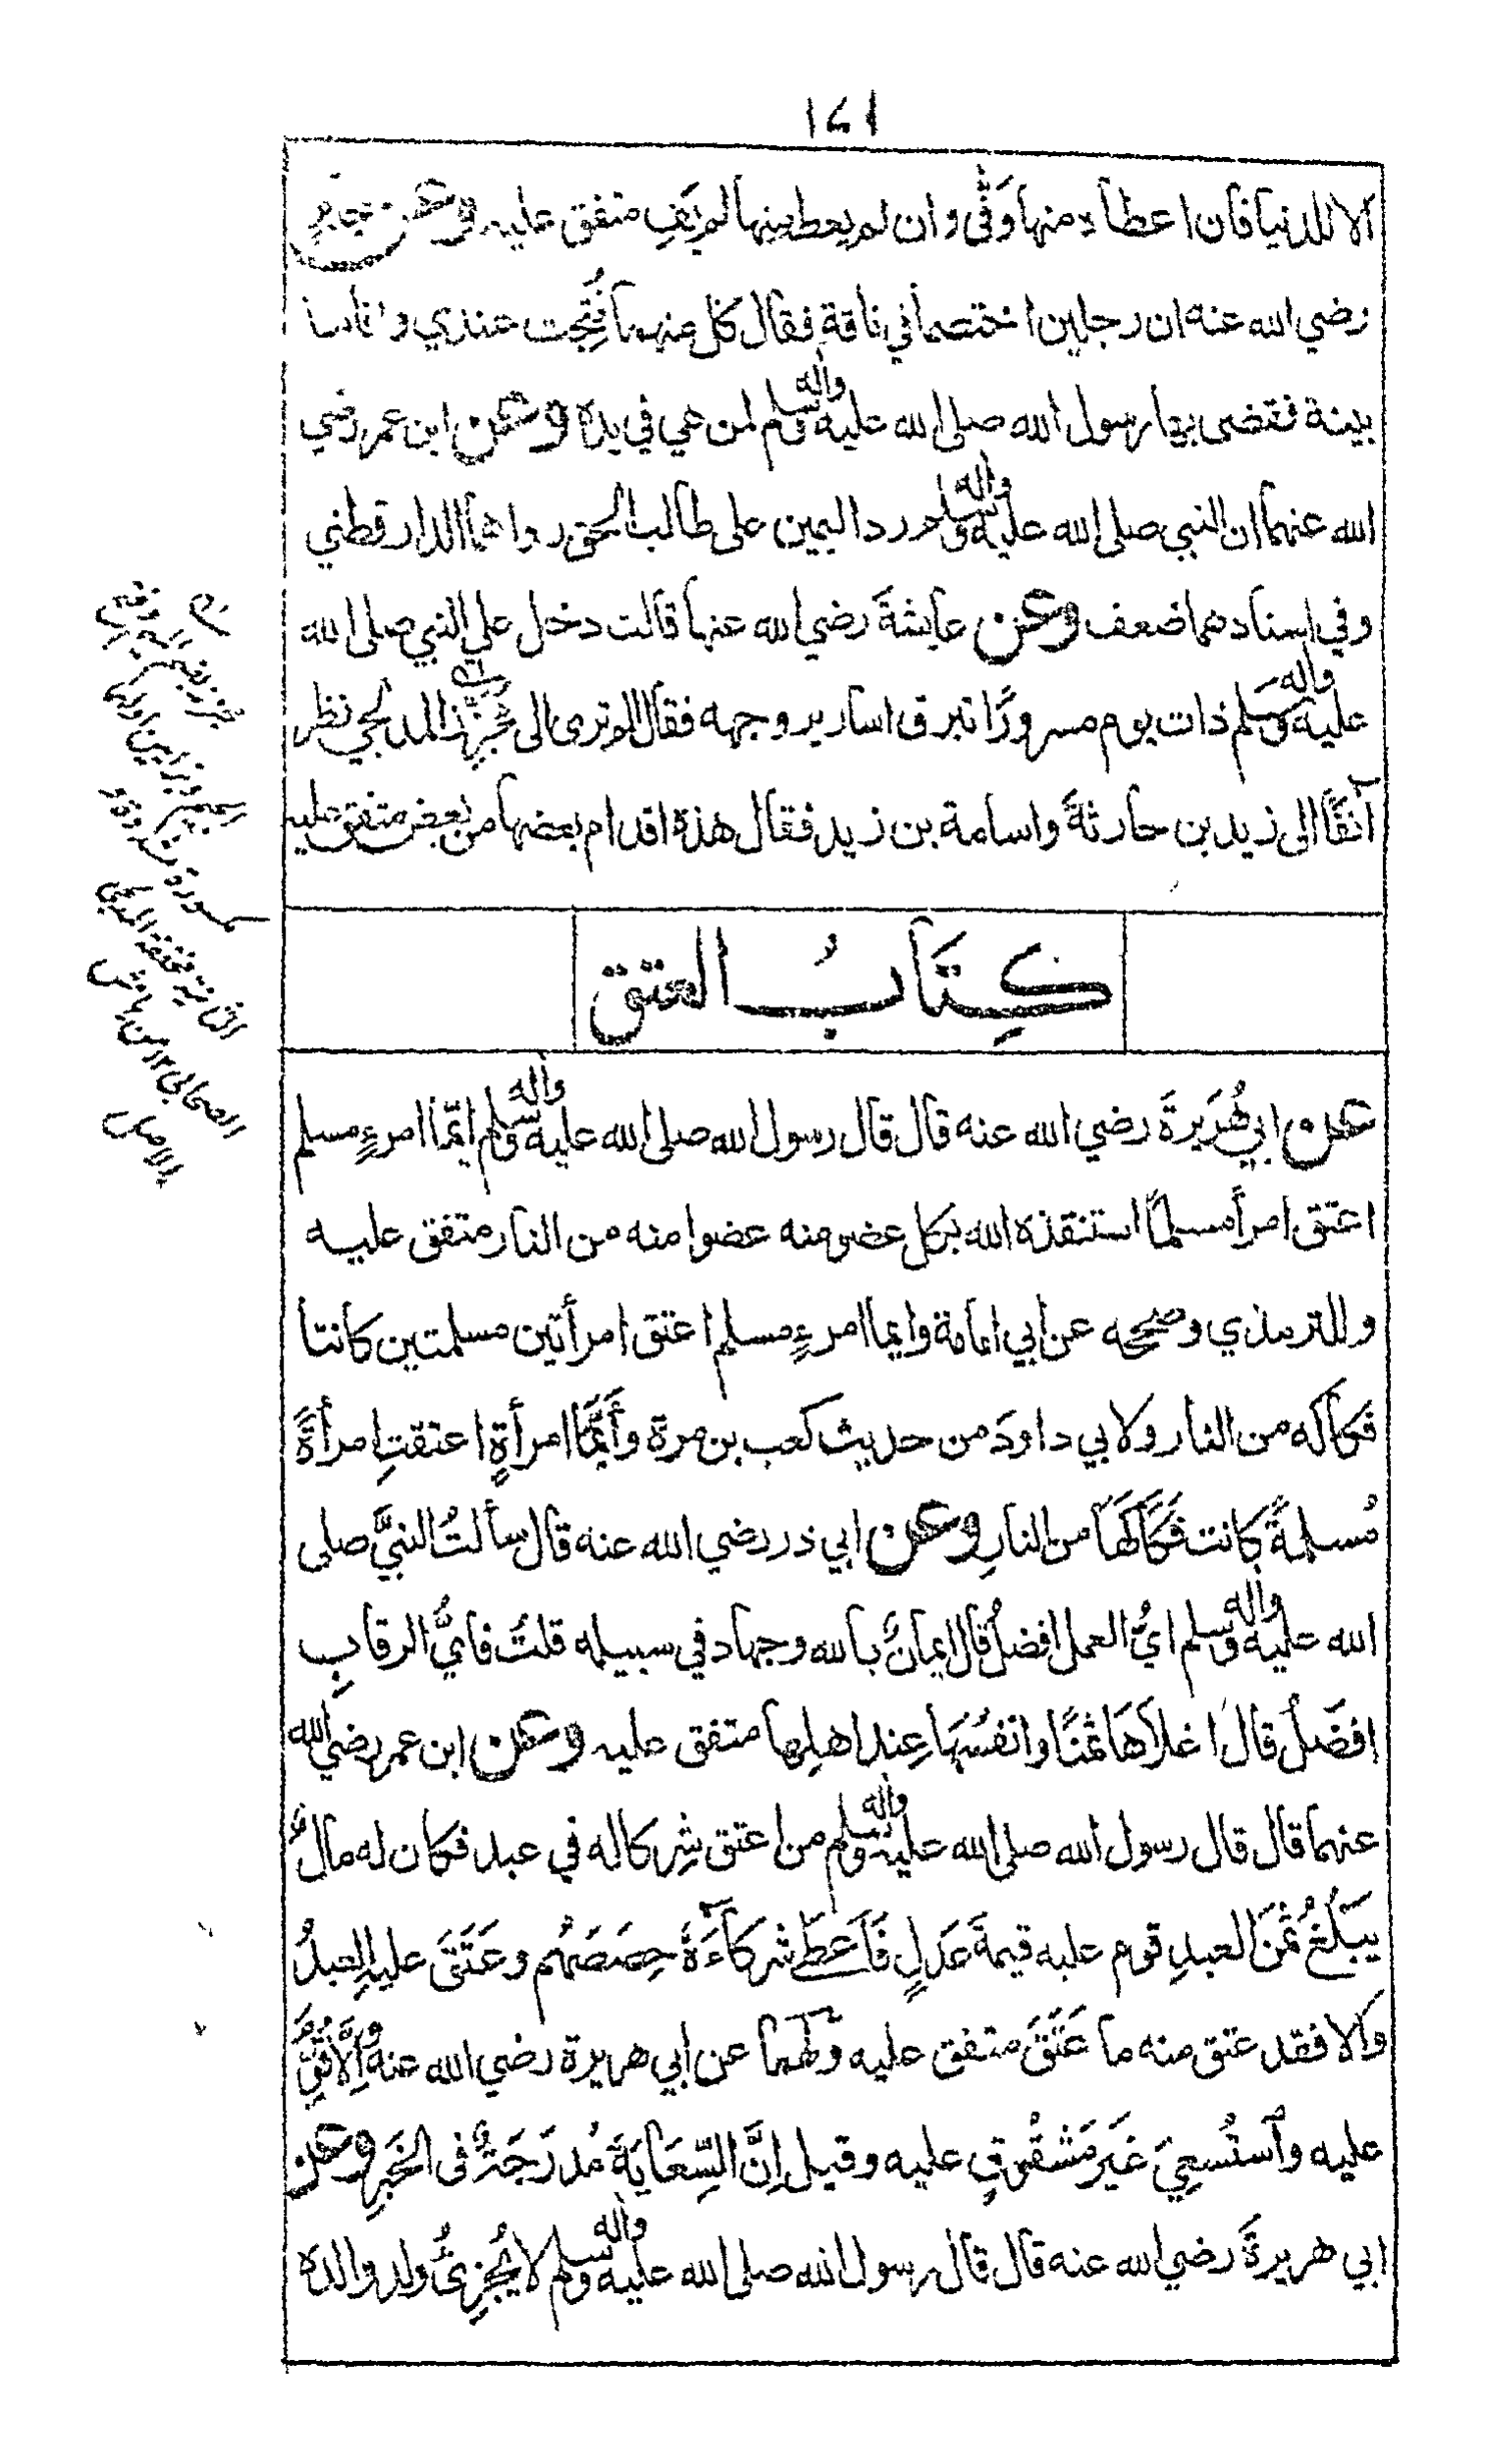 ١٤١
الا للدنيا فان اعطاه منها وَفٰى وان لم يعطه منها لم يَفِ متفق عليه وعن جابرٍ
رضي الله عنه ان رجلين اختصما في ناقة فقال كل منهما نُتِجت عندي واقاما
بينة فقضى بها رسول الله صلى الله عليه واله وسلم لمن هي في يده وعن ابن عمر رضي
الله عنهما ان النبي صلى الله عليه واله وسلم رد اليمين على طالب الحق رواهما الدارقطني
وفي اسنادهما ضعف وعن عايشةَ رضي الله عنها قالت دخل علي النبي صلى الله
عليه واله وسلم ذات يوم مسرورًا تبرق اسارير وجهه فقال الم تري الى مُجَزِّز المدلجي نظر
آنفًا الى زيد بن حارثةَ واسامة بن زيد فقال هذه اقدام بعضها من بعض متفق عليه
كِتَابُ العتق
عن ابي هُرَيرةَ رضي الله عنه قال قال رسول الله صلى الله عليه واله وسلم ايّما امرءٍ مسلم
اعتق امرأ مسلمًا استنقذه الله بكل عضو منه عضوا منه من النار متفق عليه
وللترمذي وصححه عن ابي امامة وايما امرءٍ مسلم اعتق امرأتين مسلمتين كانتا
فكاكه من النار ولابي داودَ من حديث كعب بن مرة وأَيّمَا امرأةٍ اعتقتِ امرأةً
مُسلمةً كانت فَكَاكَهَا من النارِ وعن ابي ذر رضي الله عنه قال سألتُ النبيَّ صلى
الله عليه واله وسلم ايُّ العمل افضلُ قال ايمانٌ بالله وجهاد في سبيله قلتُ فايُّ الرقابِ
افضَلُ قالَ اغلاَهَا ثمنًا وانفسُهَا عِند اهلِها متفق عليه وعن ابن عمر رضي الله
عنهما قال قال رسول الله صلى الله عليه واله وسلم من اعتق شِركا له في عبد فكان له مالٌ
يَبْلُغُ ثمَنَ العبدِ قوم عليه قيمةَ عَدلٍ فَاَعطَى شركاَءَهُ حِصَصَهُم وعَتَقَ عليهِ العبدُ
وَالا فقد عتق منه ما عَتَقَ متفق عليه وَلهما عن ابي هريرة رضي الله عنه وَاِلَّا قُوِّمَ
عليه وٱستُسعِيَ غَيرَ مَشقُوقٍ عليه وقيل اِنَّ السِّعَايَةَ مُدرَجَةٌ فى الخَبرِ وعن
ابي هريرةَ رضي الله عنه قال قال رسول الله صلى الله عليه واله وسلم لا يُجزِئُ ولد والده